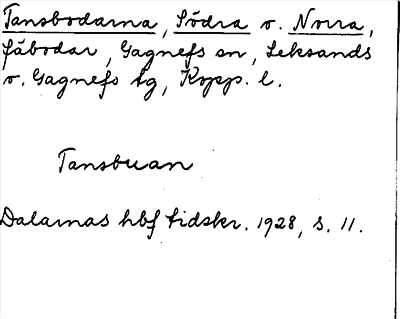 Tansbodarna, Södra o. Norra,
fäbodar, Gagnefs sn, Leksands
o. Gagnefs tg, Kopp. l.
Tansbuan
Dalarnas hbf tidskr. 1928, s. 11.